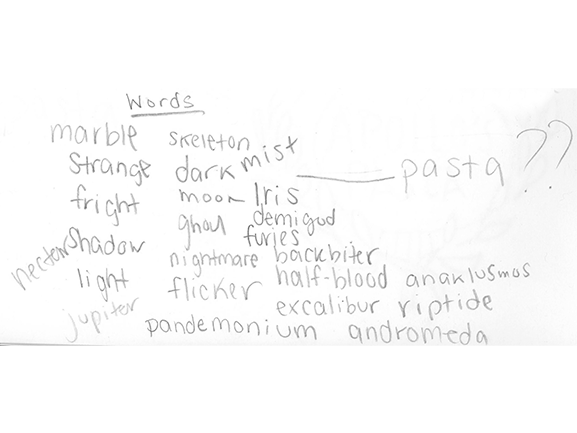 Words
marble skeleton
strange dark mist ____ pasta ??
fright moon Iris
ghoul demigod
shadow furies
nectar nightmare backbiter
light flicker half-blood anaklusmos
jupiter excalibur riptide
pandemonium andromeda